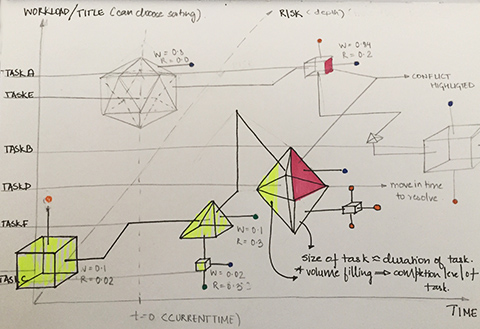 WORKLOAD/TITLE (can choose sorting)
RISK (depth)
W = 0.8
R = 0.0
W = 0.94
R = 0.2
TASK A
TASK E
CONFLICT
HIGHLIGHTED
TASK B
TASK D
move in time
to resolve
TASK F
W = 0.1
R = 0.3
W = 0.1
R = 0.02
W = 0.02
TASK C
size of task ≈ duration of task.
+ volume filling ⇒ completion level of
task.
t=0 (CURRENT TIME)
TIME